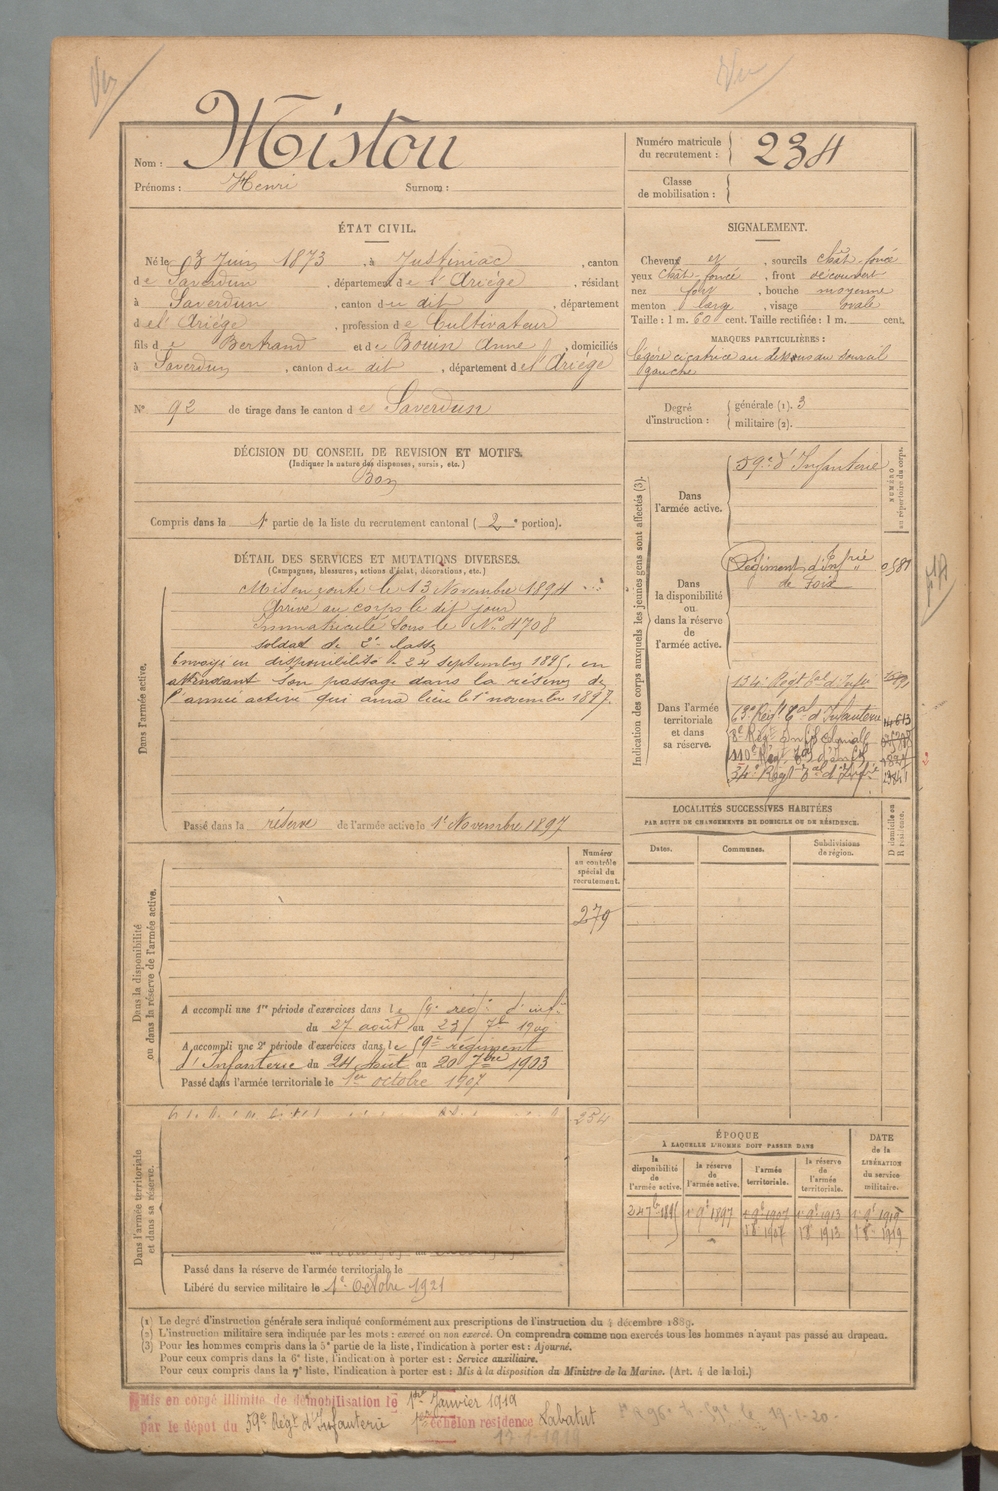 Vu
Vu
Nom : Mistou
Prénoms : Henri Surnom :
Numéro matricule du recrutement : 234
Classe de mobilisation :
ÉTAT CIVIL.
Né le 3 Juin 1873, à Justiniac, canton
de Saverdun, département de l'Ariège, résidant
à Saverdun, canton du dit, département
de l'Ariège, profession de Cultivateur
fils de Bertrand et de Bouin Anne, domiciliés
à Saverdun, canton du dit, département de l'Ariège
N° 92 de tirage dans le canton de Saverdun
SIGNALEMENT.
Cheveux et, sourcils chât-foncé
yeux chât-foncé, front découvert
nez fort, bouche moyenne
menton large, visage ovale
Taille : 1 m. 60 cent. Taille rectifiée : 1 m. cent.
MARQUES PARTICULIÈRES :
Légère cicatrice au dessous du sourcil
gauche
Degré d'instruction : générale (1). 3
militaire (2).
DÉCISION DU CONSEIL DE REVISION ET MOTIFS.
(Indiquer la nature des dispenses, sursis, etc.)
Bon
Compris dans la 1e partie de la liste du recrutement cantonal (2e portion).
DÉTAIL DES SERVICES ET MUTATIONS DIVERSES.
(Campagnes, blessures, actions d'éclat, décorations, etc.)
Dans l'armée active.
Mis en route le 13 Novembre 1894
Arrivé au corps le dit jour
Immatriculé sous le N° 4708
soldat de 2e classe
Envoyé en disponibilité le 24 septembre 1895, en
attendant son passage dans la réserve de
l'armée active qui aura lieu le 1er novembre 1897.
Passé dans la réserve de l'armée active le 1er Novembre 1897
Indication des corps auxquels les jeunes gens sont affectés (3).
NUMÉRO au répertoire du corps.
Dans l'armée active.
59e d'Infanterie
Dans la disponibilité ou dans la réserve de l'armée active.
Régiment d'Infrie
de Foix
Dans l'armée territoriale et dans sa réserve.
134e Régt tal d'Infie
Dans la disponibilité ou dans la réserve de l'armée active.
Numéro au contrôle spécial du recrutement.
279
A accompli une 1re période d'exercices dans le 59e rég. d'inf.
du 27 août au 23 7bre 1900
A accompli une 2e période d'exercices dans le 59e régiment
d'Infanterie du 24 Août au 20 7bre 1903
Passé dans l'armée territoriale le 1er octobre 1907
LOCALITÉS SUCCESSIVES HABITÉES
PAR SUITE DE CHANGEMENTS DE DOMICILE OU DE RÉSIDENCE.
Dates.
Communes.
Subdivisions de région.
D domicile ou R résidence.
Dans l'armée territoriale et dans sa réserve.
254
Passé dans la réserve de l'armée territoriale le
Libéré du service militaire le 1er Octobre 1921
ÉPOQUE
À LAQUELLE L'HOMME DOIT PASSER DANS
la disponibilité de l'armée active.
la réserve de l'armée active.
l'armée territoriale.
la réserve de l'armée territoriale.
DATE de la LIBÉRATION du service militaire.
(1) Le degré d'instruction générale sera indiqué conformément aux prescriptions de l'instruction du 4 décembre 1889.
(2) L'instruction militaire sera indiquée par les mots : exercé ou non exercé. On comprendra comme non exercés tous les hommes n'ayant pas passé au drapeau.
(3) Pour les hommes compris dans la 5e partie de la liste, l'indication à porter est : Ajourné.
Pour ceux compris dans la 6e liste, l'indication à porter est : Service auxiliaire.
Pour ceux compris dans la 7e liste, l'indication à porter est : Mis à la disposition du Ministre de la Marine. (Art. 4 de la loi.)
Mis en congé illimité de démobilisation le 1er Janvier 1919
par le dépôt du 59e Régt d'Infanterie 1er échelon résidence Labatut